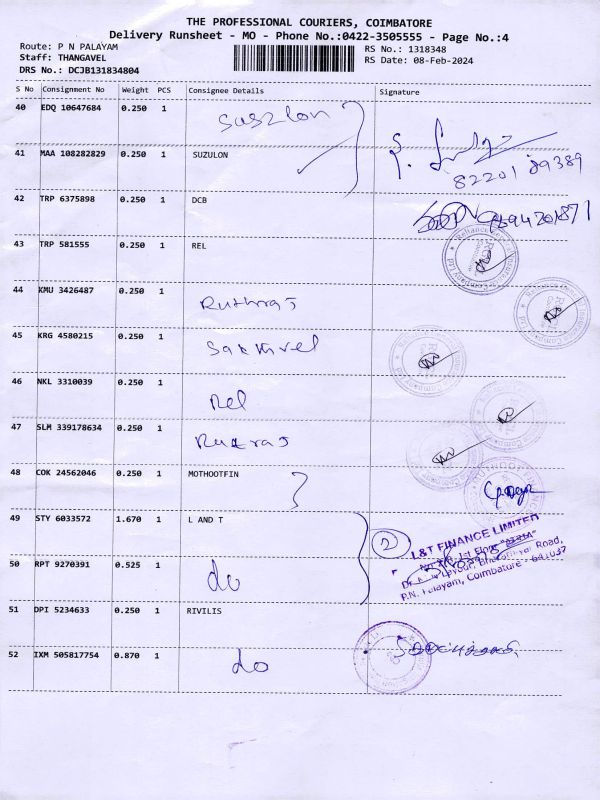 THE PROFESSIONAL COURIERS, COIMBATORE
Delivery Runsheet - MO - Phone No.:0422-3505555 - Page No.:4
Route: P N PALAYAM
RS No.: 1318348
Staff: THANGAVEL
RS Date: 08-Feb-2024
DRS No.: DCJB131834804
S No Consignment No Weight PCS Consignee Details Signature
40 EDQ 10647684 0.250 1 Suszlon
41 MAA 108282829 0.250 1 SUZULON
82201 89389
42 TRP 6375898 0.250 1 DCB
9894201871
43 TRP 581555 0.250 1 REL
44 KMU 3426487 0.250 1 Ruthraj
45 KRG 4580215 0.250 1 Sakthivel
46 NKL 3310039 0.250 1 Rel
47 SLM 339178634 0.250 1 Rudraj
48 COK 24562046 0.250 1 MOTHOOTFIN
49 STY 6033572 1.670 1 L AND T
2
L&T FINANCE LIMITED
1st Floor
Road,
P.N. Palayam, Coimbatore - 641037
50 RPT 9270391 0.525 1 do
51 DPI 5234633 0.250 1 RIVILIS
52 IXM 505817754 0.870 1 do